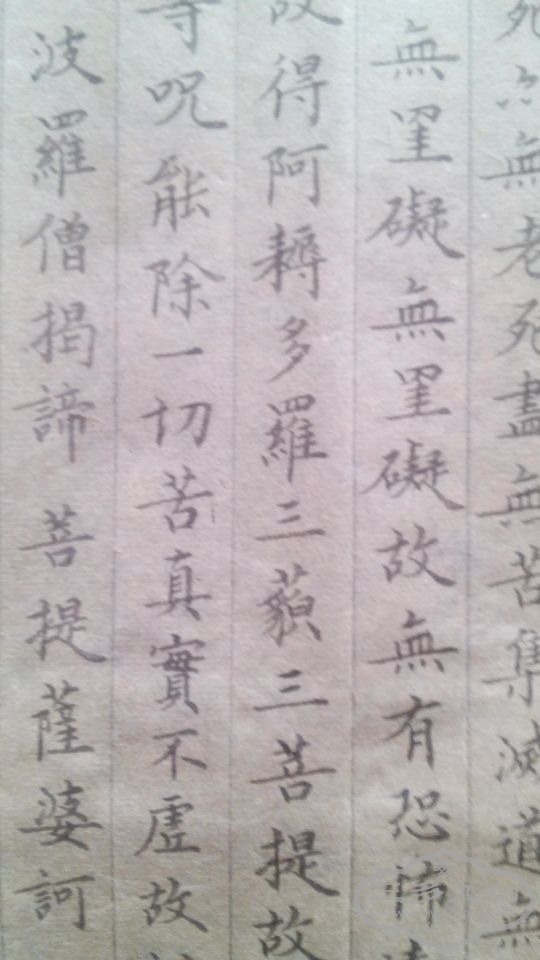 死亦無老死盡無苦集滅道無
無罣礙無罣礙故無有恐怖
故得阿耨多羅三藐三菩提故
等呪能除一切苦真實不虛故
波羅僧揭諦 菩提薩婆訶